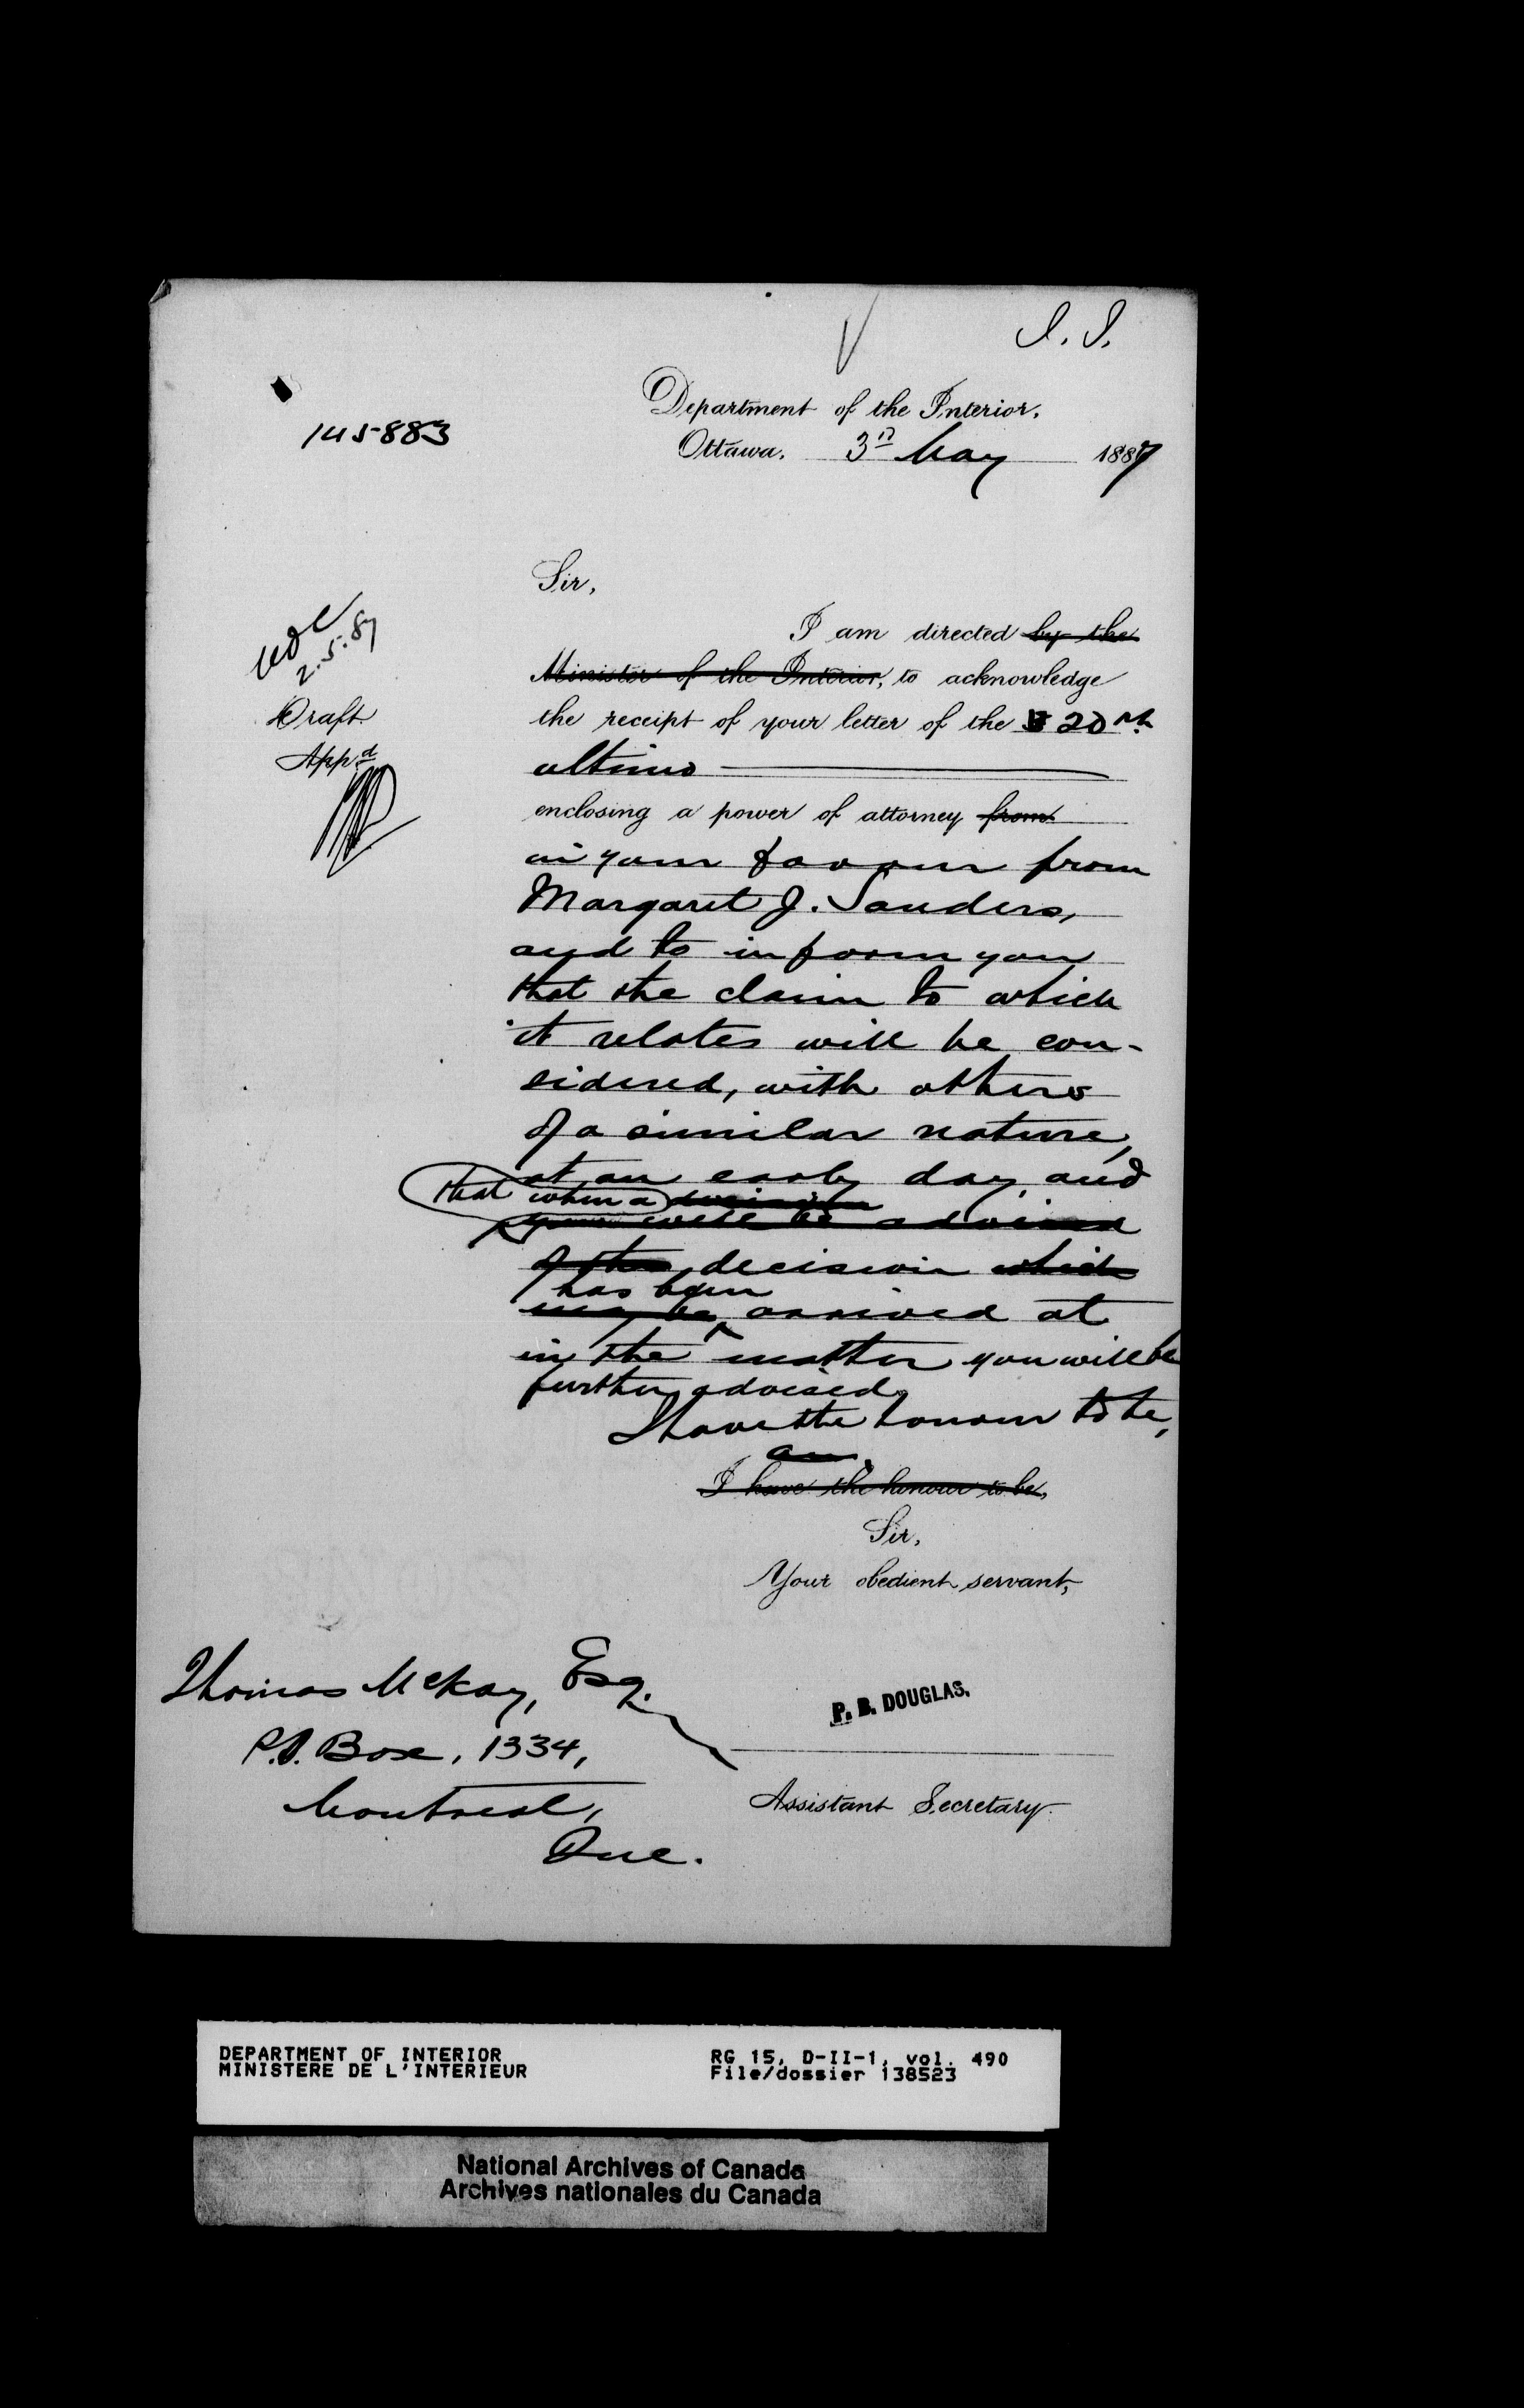 145883
Department of the Interior.
Ottawa. 3rd May 1887
Sir,
2.5.87
Draft
Appd
I am directed by the
Minister of the Interior, to acknowledge
the receipt of your letter of the 20th
ultimo
enclosing a power of attorney from
in your favour from
Margaret J. Sanders,
and to inform you
that the claim to which
it relates will be con-
sidered, with others
of a similar nature,
at an early day, and
that when a decision
you will be advised
of the decision which
has been
may be arrived at
in the matter you will be
further advised.
I have the honour to be,
I have the honour to be,
Sir,
Your obedient servant,
Thomas McKay, Esq.
P.O. Box, 1334,
Montreal,
Que.
P. B. DOUGLAS.
Assistant Secretary.
DEPARTMENT OF INTERIOR
MINISTERE DE L'INTERIEUR
RG 15, D-II-1, vol. 490
File/dossier 138523
National Archives of Canada
Archives nationales du Canada